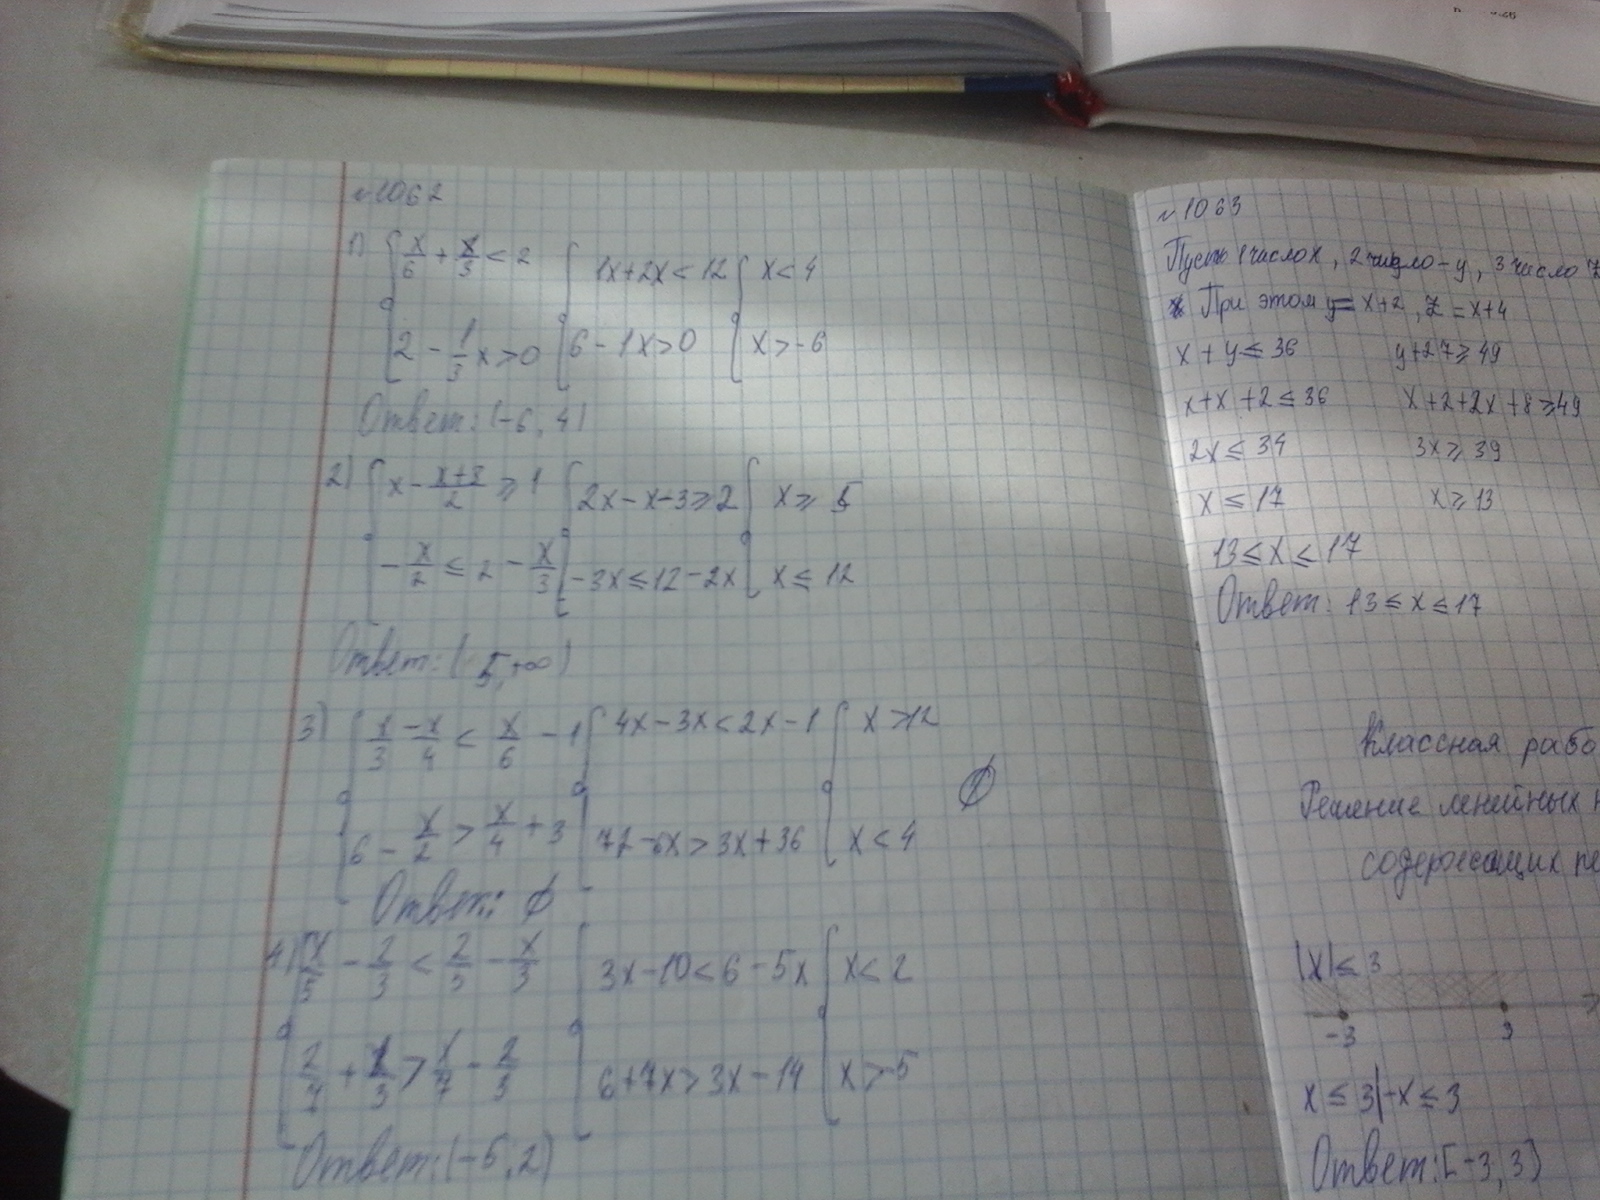 №1062
1) { x/6 + x/3 < 2 { 1x+2x < 12 { x < 4
{ 2 - 1/3 x > 0 { 6 - 1x > 0 { x > -6
Ответ: (-6, 4)
2) { x - x+3/2 ⩾ 1 { 2x - x - 3 ⩾ 2 { x ⩾ 5
{ - x/2 ≤ 2 - x/3 { -3x ≤ 12 - 2x { x ≤ 12
Ответ: ( 5, +∞)
3) { x/3 - x/4 < x/6 - 1 { 4x - 3x < 2x - 1 { x > 12
∅
{ 6 - x/2 > x/4 + 3 { 72 - 6x > 3x + 36 { x < 4
Ответ: ∅
4) { x/5 - 2/3 < 2/5 - x/3 { 3x - 10 < 6 - 5x { x < 2
{ 2/7 + x/3 > x/7 - 2/3 { 6 + 7x > 3x - 14 { x > -5
Ответ: (-5, 2)
№1063
Пусть 1 число x, 2 число - y, 3 число z
При этом y = x+2, z = x+4
x + y ≤ 36 y + 2z ⩾ 49
x + x + 2 ≤ 36 x + 2 + 2x + 8 ⩾ 49
2x ≤ 34 3x ⩾ 39
x ≤ 17 x ⩾ 13
13 ≤ x ≤ 17
Ответ: 13 ≤ x ≤ 17
Классная рабо
Решение линейных н
содержащих пе
|x| ≤ 3
-3 3
x ≤ 3 | -x ≤ 3
Ответ: [-3, 3)